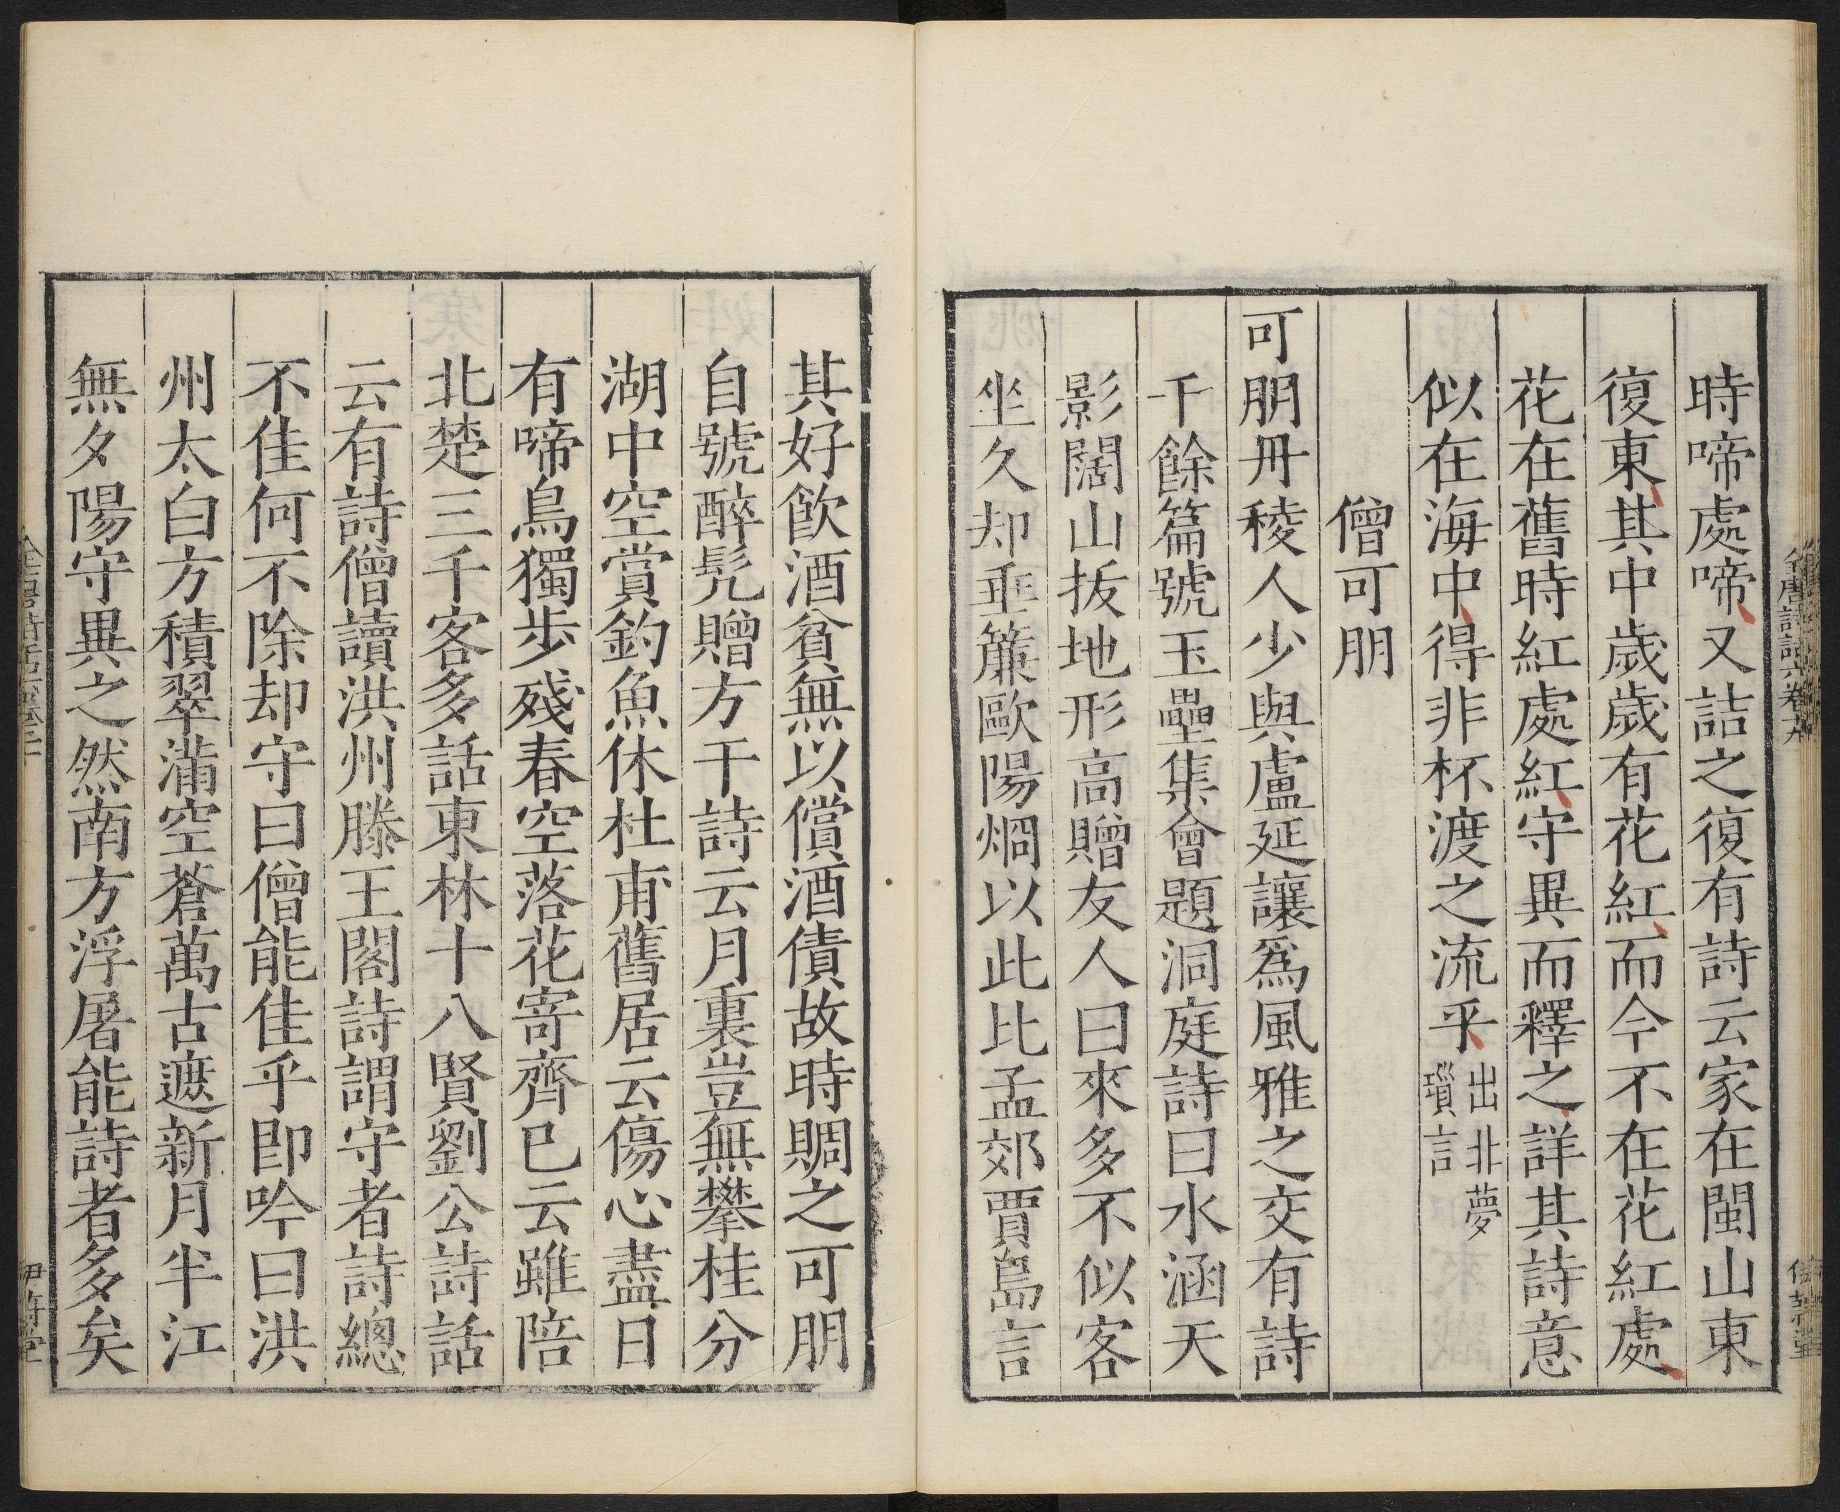 時啼處啼又詰之復有詩云家在閩山東
復東其中歲歲有花紅而今不在花紅處
花在舊時紅處紅守異而釋之詳其詩意
似在海中得非杯渡之流乎出北夢瑣言
僧可朋
可朋丹稜人少與盧延讓爲風雅之交有詩
千餘篇號玉壘集會題洞庭詩曰水涵天
影闊山拔地形高贈友人曰來多不似客
坐久却垂簾歐陽烱以此比孟郊賈島言
其好飲酒貧無以償酒債故時賙之可朋
自號醉髠贈方干詩云月裏豈無攀桂分
湖中空賞釣魚休杜甫舊居云傷心盡日
有啼鳥獨步殘春空落花寄齊已云雖陪
北楚三千客多話東林十八賢劉公詩話
云有詩僧讀洪州滕王閣詩謂守者詩總
不佳何不除却守曰僧能佳乎即吟曰洪
州太白方積翠滿空蒼萬古遮新月半江
無夕陽守異之然南方浮屠能詩者多矣